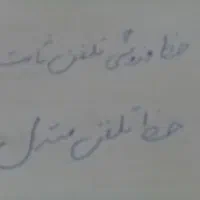 خط فروشی تلفن ثابت
خط تلفن منزل